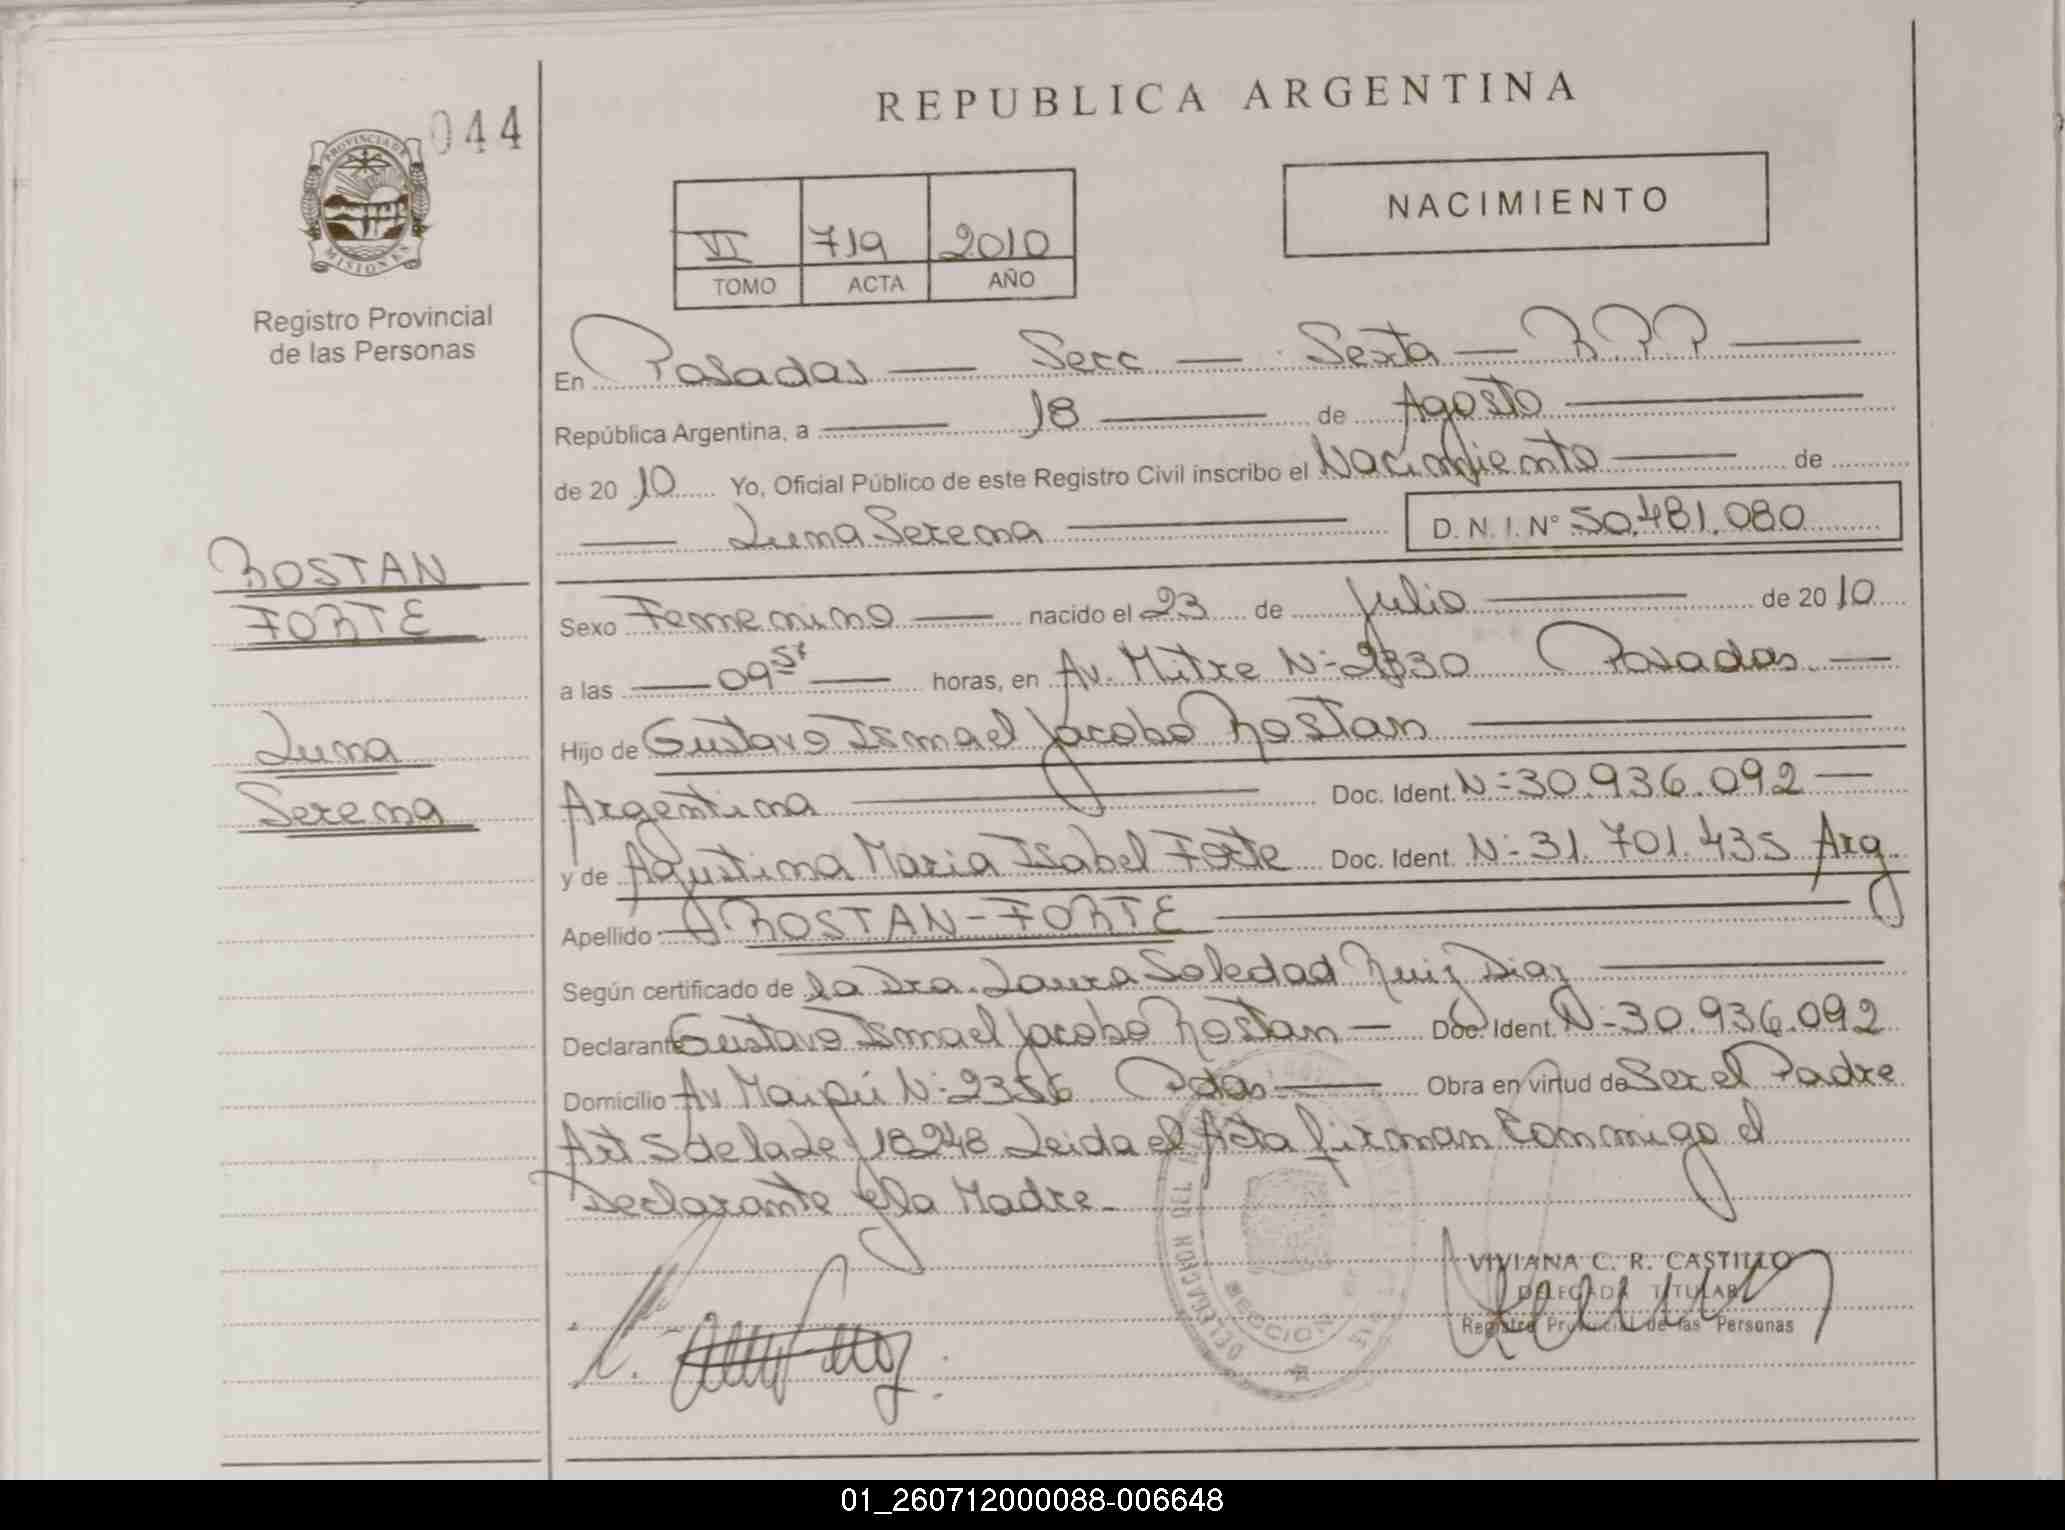 REPUBLICA ARGENTINA
044
PROVINCIA DE MISIONES
Registro Provincial
de las Personas
VI 719 2010
TOMO ACTA AÑO
NACIMIENTO
En Posadas — Secc — Sexta — R P P —
República Argentina, a — 18 — de Agosto —
de 2010 Yo, Oficial Público de este Registro Civil inscribo el Nacimiento — de
— Luna Serena — D. N. I. N° 50.481.080
ROSTAN
FORTE
Luna
Serena
Sexo Femenino — nacido el 23 de Julio — de 2010
a las — 09 — horas, en Av. Mitre N° Posadas. —
Hijo de Gustavo Ismael Jacobo Rostan —
Argentina — Doc. Ident. N° 30.936.092 —
y de Agustina Maria Isabel Forte Doc. Ident. N° 31.701.435 Arg.
Apellido ROSTAN-FORTE —
Según certificado de la Dra. Laura Soledad Ruiz Diaz —
Declarante Gustavo Ismael Jacobo Rostan — Doc. Ident. N° 30.936.092
Domicilio Av Maipú N° 2356 Pdas — Obra en virtud de Ser el Padre
Art 5 de la Ley 18248 Leida el Acta firman Conmigo el
Declarante y la Madre.
DELEGACION DEL
SECCION
VIVIANA C. R. CASTILLO
DELEGADA TITULAR
Registro Provincial de las Personas
01_260712000088-006648